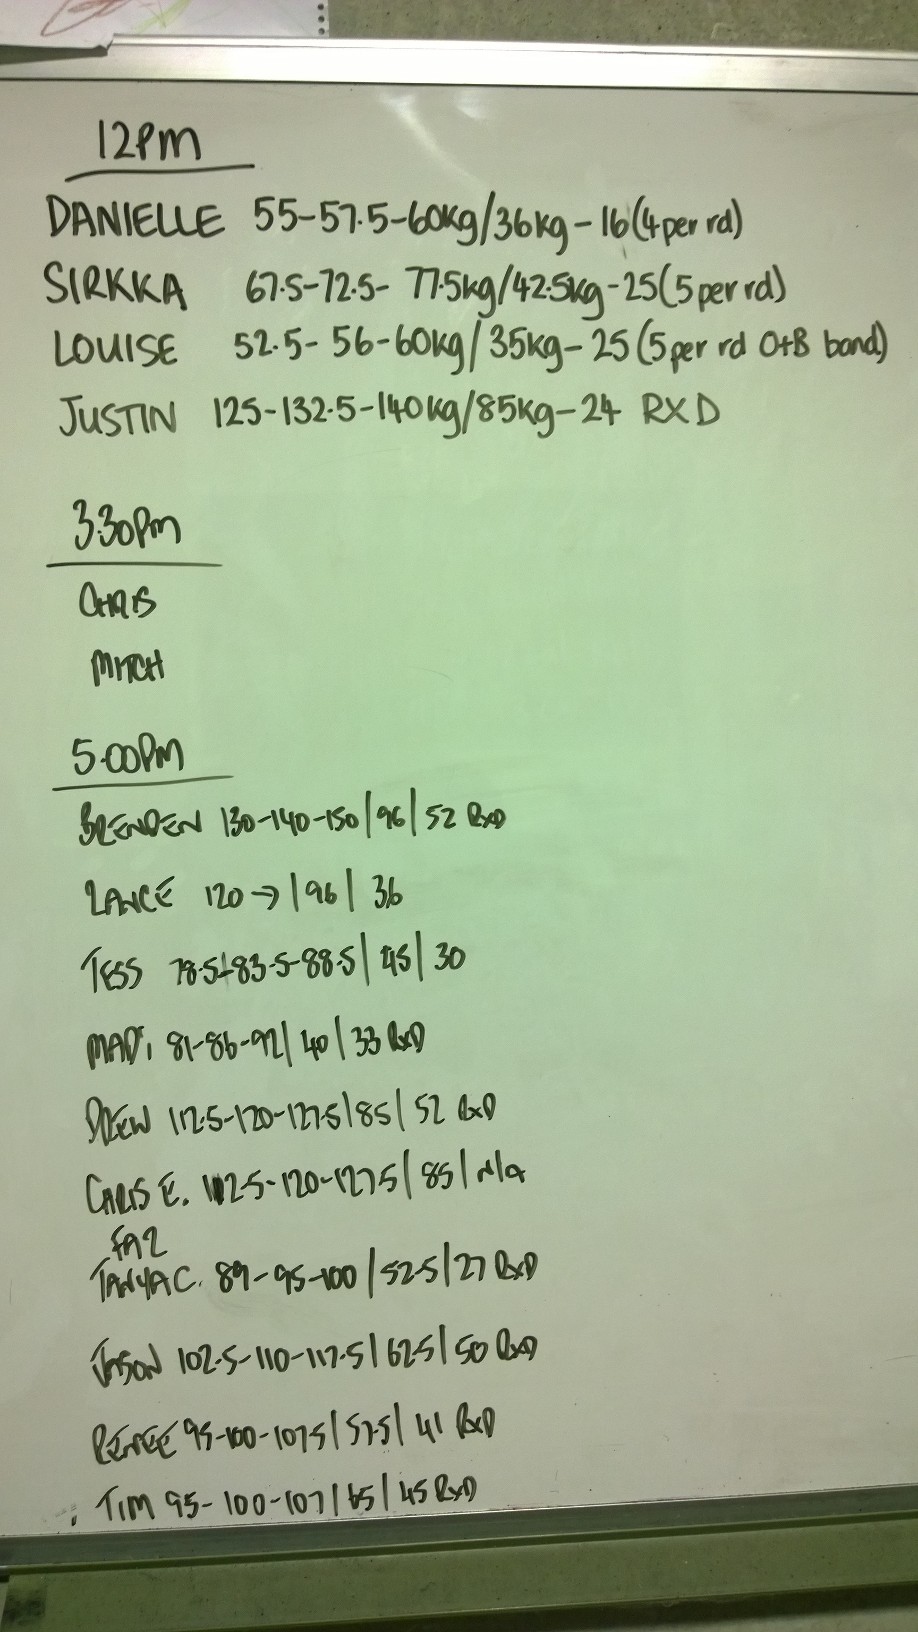 12PM
DANIELLE 55-57.5-60kg/36kg-16(4 per rd)
SIRKKA 67.5-72.5-77.5kg/42.5kg-25(5 per rd)
LOUISE 52.5-56-60kg/35kg-25(5 per rd O+B band)
JUSTIN 125-132.5-140kg/85kg-24 RXD
3.30Pm
CHRIS
MITCH
5.00PM
BRENDEN 130-140-150|96|52 RxD
LANCE 120→|96|36
TESS 78.5-83.5-88.5|45|30
MADi 81-86-92|40|33 RxD
DREW 112.5-120-127.5|85|52 RxD
CHRIS E. 112.5-120-127.5|85|N/a
FAZ
TANYA C. 89-95-100|52.5|27 RxD
JASON 102.5-110-117.5|62.5|50 RxD
RENEE 95-100-107.5|57.5|41 RxD
TIM 95-100-107|65|45 RxD